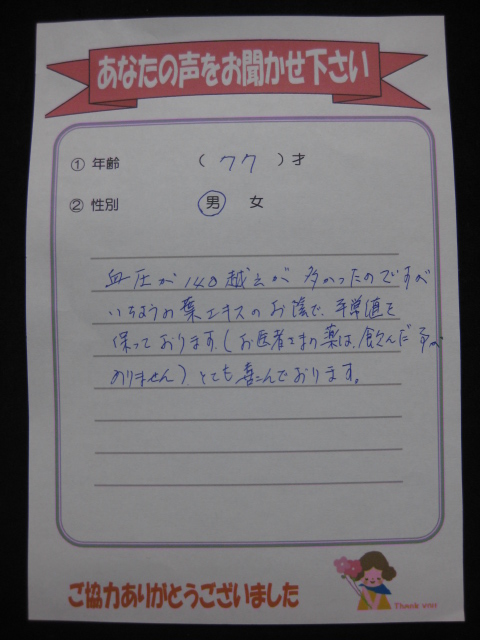 あなたの声をお聞かせ下さい
① 年齢 ( 77 ) 才
② 性別 男 女
血圧が140越えが多かったのですが
いちょうの葉エキスのお蔭で、平常値を
保っております。(お医者さまの薬は、飲んだ事が
ありません)、とても喜こんでおります。
ご協力ありがとうございました
Thank you